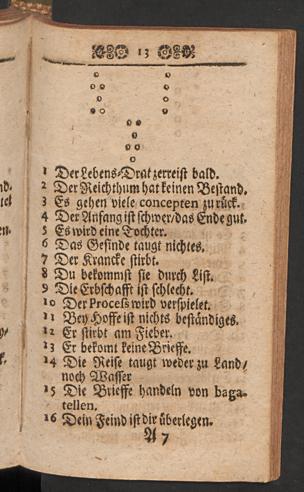 13
1 Der Lebens-Drat zerreist bald.
2 Der Reichthum hat keinen Bestand.
3 Es gehen viele concepten zurück.
4 Der Anfang ist schwer/das Ende gut.
5 Es wird eine Tochter.
6 Das Gesinde taugt nichtes.
7 Der Krancke stirbt.
8 Du bekommst sie durch List.
9 Die Erbschafft ist schlecht.
10 Der Process wird verspielet.
11 Bey Hoffe ist nichts beständiges.
12 Er stirbt am Fieber.
13 Er bekomt keine Brieffe.
14 Die Reise taugt weder zu Land/
noch Wasser
15 Die Brieffe handeln von baga-
tellen.
16 Dein Feind ist dir überlegen.
A 7